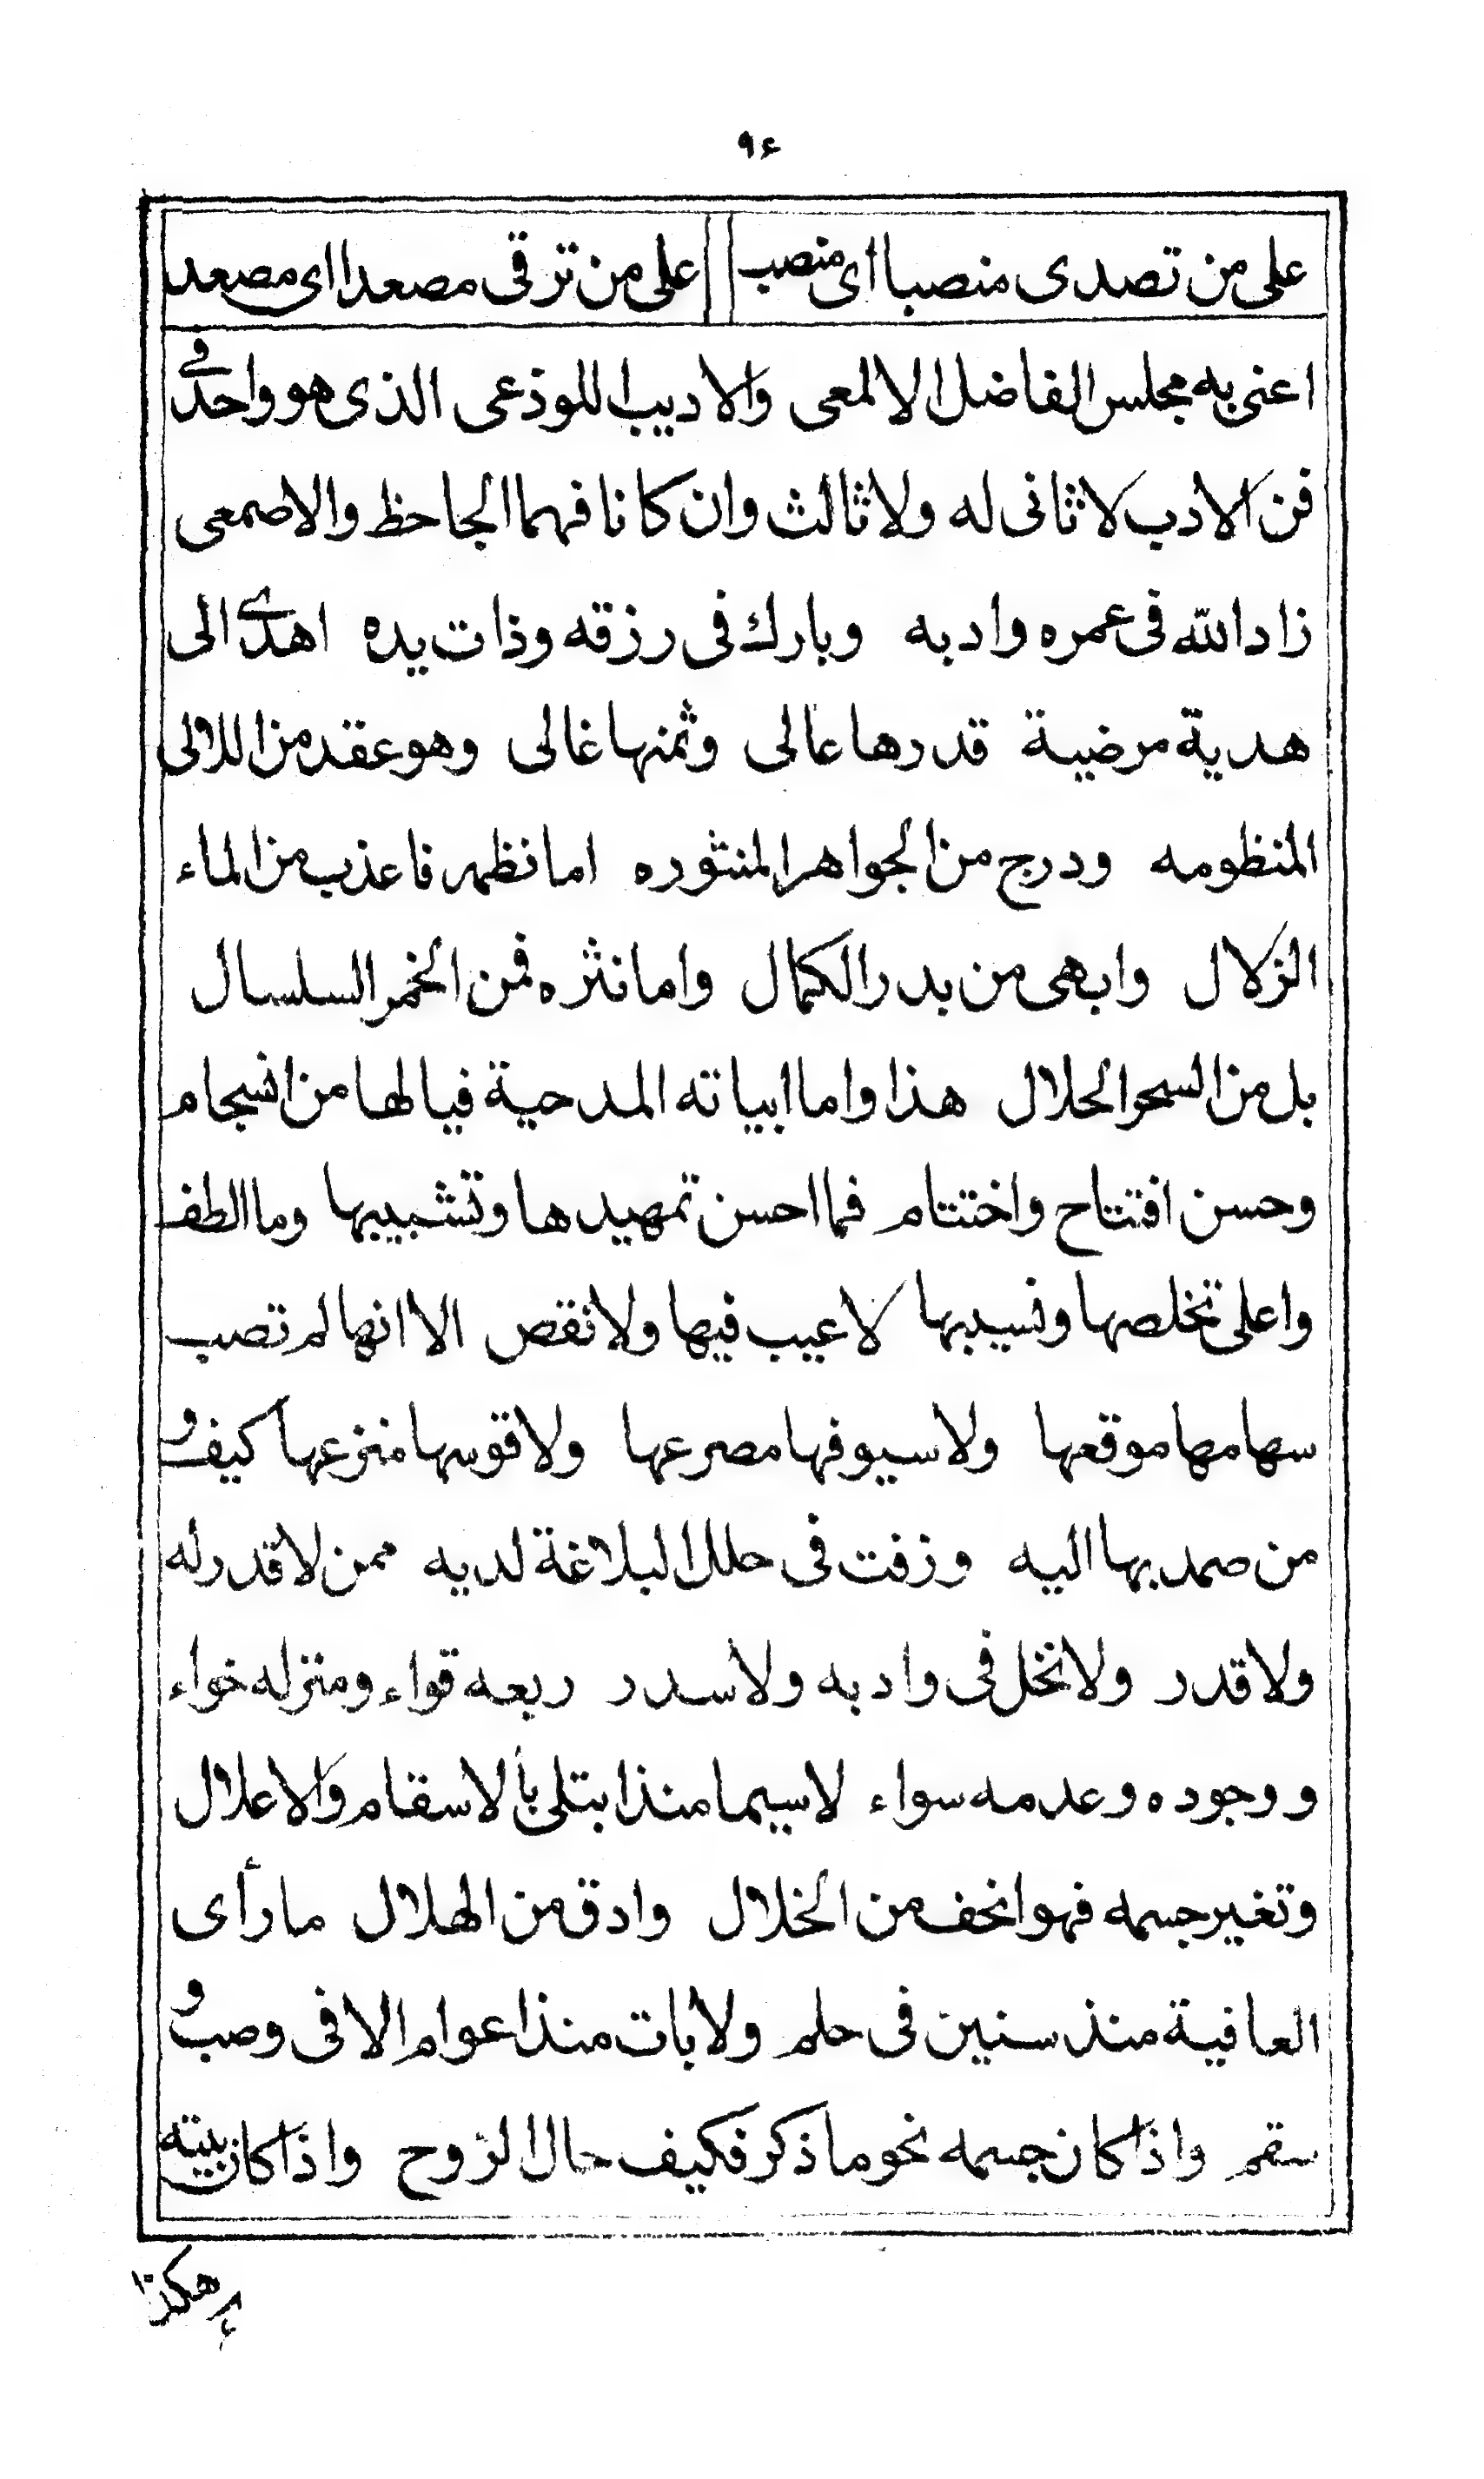 ٩٤
على من تصدى منصبا اى منصب على من ترقى مصعدا اى مصعد
اعنى به مجلس الفاضل الالمعى والاديب اللوذعى الذى هو واحد فى
فن الادب لا ثانى له ولا ثالث وان كانا فهما الجاحظ والاصمعى
زاد الله فى عمره وادبه وبارك فى رزقه وذات يده اهدى الى
هدية مرضية قدرها عالى وثمنها غالى وهو عقد من اللالى
المنظومه ودرج من الجواهر المنثوره اما نظمه فاعذب من الماء
الزلال وابهى من بدر الكمال واما نثره فمن الخمر السلسال
بل من السحر الحلال هذا واما ابياته المدحية فيا لها من انسجام
وحسن افتتاح واختتام فما احسن تمهيدها وتشبيبها وما الطف
واعلى تخلصها ونسيبها لا عيب فيها ولا نقص الا انها لم تصب
سهامها موقعها ولا سيوفها مصرعها ولا قوسها منزعها كيف و
من صمد بها اليه وزفت فى حلل البلاغة لديه ممن لا قدر له
ولا قدر ولا نخل فى واديه ولا سدر ربعه قواء ومنزله خواء
ووجوده وعدمه سواء لاسيما منذ ابتلى بالاسقام والاعلال
وتغير جسمه فهو انحف من الخلال وادق من الهلال ما رأى
العافية منذ سنين فى حلم ولا بات منذ اعوام الا فى وصب و
سقم واذا كان جسمه نحو ما ذكر فكيف حال الروح واذا كان بيته
هكذا